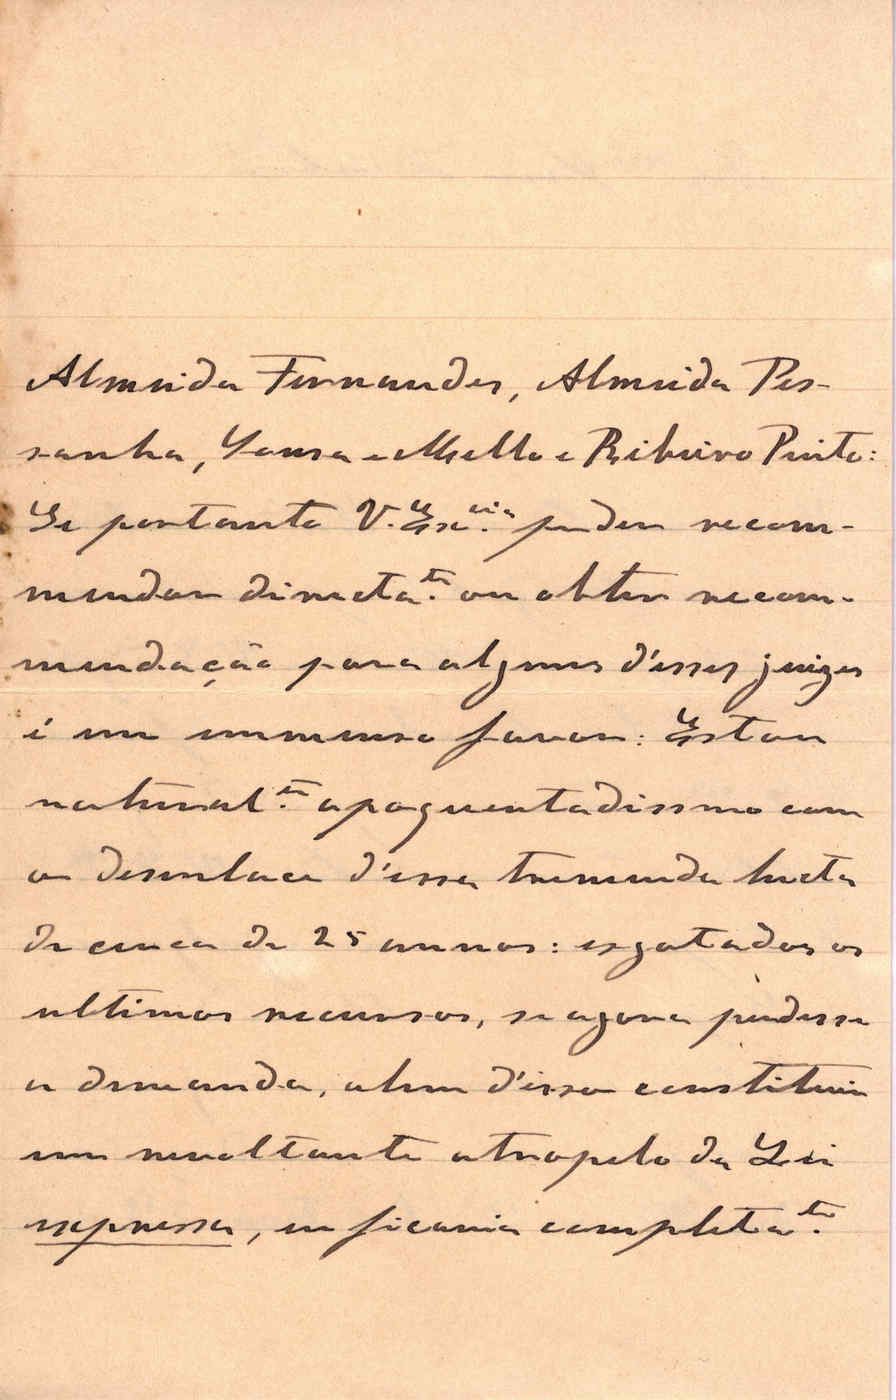 Almeida Fernandes, Almeida Pes-
sanha, Sousa e Mello e Ribeiro Pinto:
Se portanto V. Exᶜⁱᵃ. puder recom-
mendar directaᵗᵉ. ou obter recom-
mendação para alguns d'esses juizes
é um immenso favor: Estou
naturalᵗᵉ. apoquentadissmo com
o desenlace d'essa tremenda lucta
de cerca de 25 annos: esgotados os
ultimos recursos, se agora perdesse
a demanda, alem d'isso constituir
um revoltante atropelo da Lei
expressa, eu ficaria completaᵗᵉ.